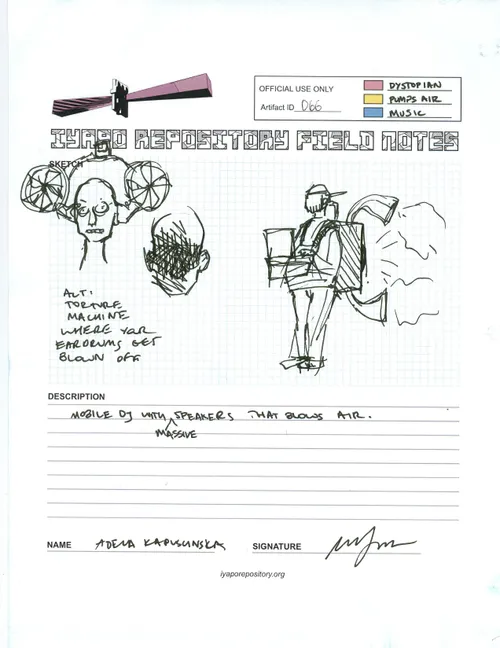 OFFICIAL USE ONLY
Artifact ID 066
DYSTOPIAN
PUMPS AIR
MUSIC
IYAPO REPOSITORY FIELD NOTES
SKETCH
ALT:
TORTURE
MACHINE
WHERE YOUR
EARDRUMS GET
BLOWN OFF
DESCRIPTION
MOBILE DJ WITH SPEAKERS THAT BLOWS AIR.
MASSIVE
NAME ADELA
SIGNATURE
iyaporepository.org